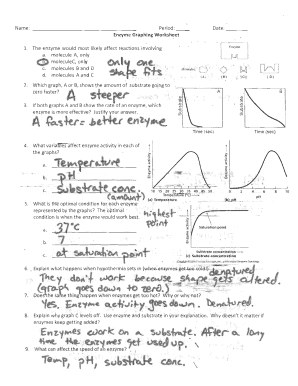 Name: Period Date
Enzyme Graphing Worksheet
1. The enzyme would most likely affect reactions involving
a. molecule A, only
b. molecule C, only
c. molecules B and D
d. molecules A and C
only one shape fits
Enzyme
(A) (B) (C) (D)
2. Which graph, A or B, shows the amount of substrate going to zero faster?
A steeper
3. If both graphs A and B show the rate of an enzyme, which enzyme is more effective? Justify your answer.
A faster = better enzyme
A
B
Substrate
Substrate
Time (sec)
Time (sec)
4. What variables affect enzyme activity in each of the graphs?
a. Temperature
b. pH
c. Substrate conc.
(amount)
Enzyme activity
Enzyme activity
(a) Temperature
(b) pH
5. What is the optimal condition for each enzyme represented by the graphs? The optimal condition is when the enzyme would work best.
highest point
a. 37°C
b. 7
c. at saturation point
Enzyme activity
Saturation point
Substrate concentration
(c) Substrate concentration
6. Explain what happens when hypothermia sets in (when enzymes get too cold).
denatured
They don't work because shape gets altered.
(graph goes down to zero.)
7. Does the same thing happen when enzymes get too hot? Why or why not?
Yes, Enzyme activity goes down. Denatured.
8. Explain why graph C levels off. Use enzyme and substrate in your explanation. Why doesn't it matter if enzymes keep getting added?
Enzymes work on a substrate. After a long
time the enzymes get used up.
9. What can affect the speed of an enzyme?
Temp, pH, substrate conc.